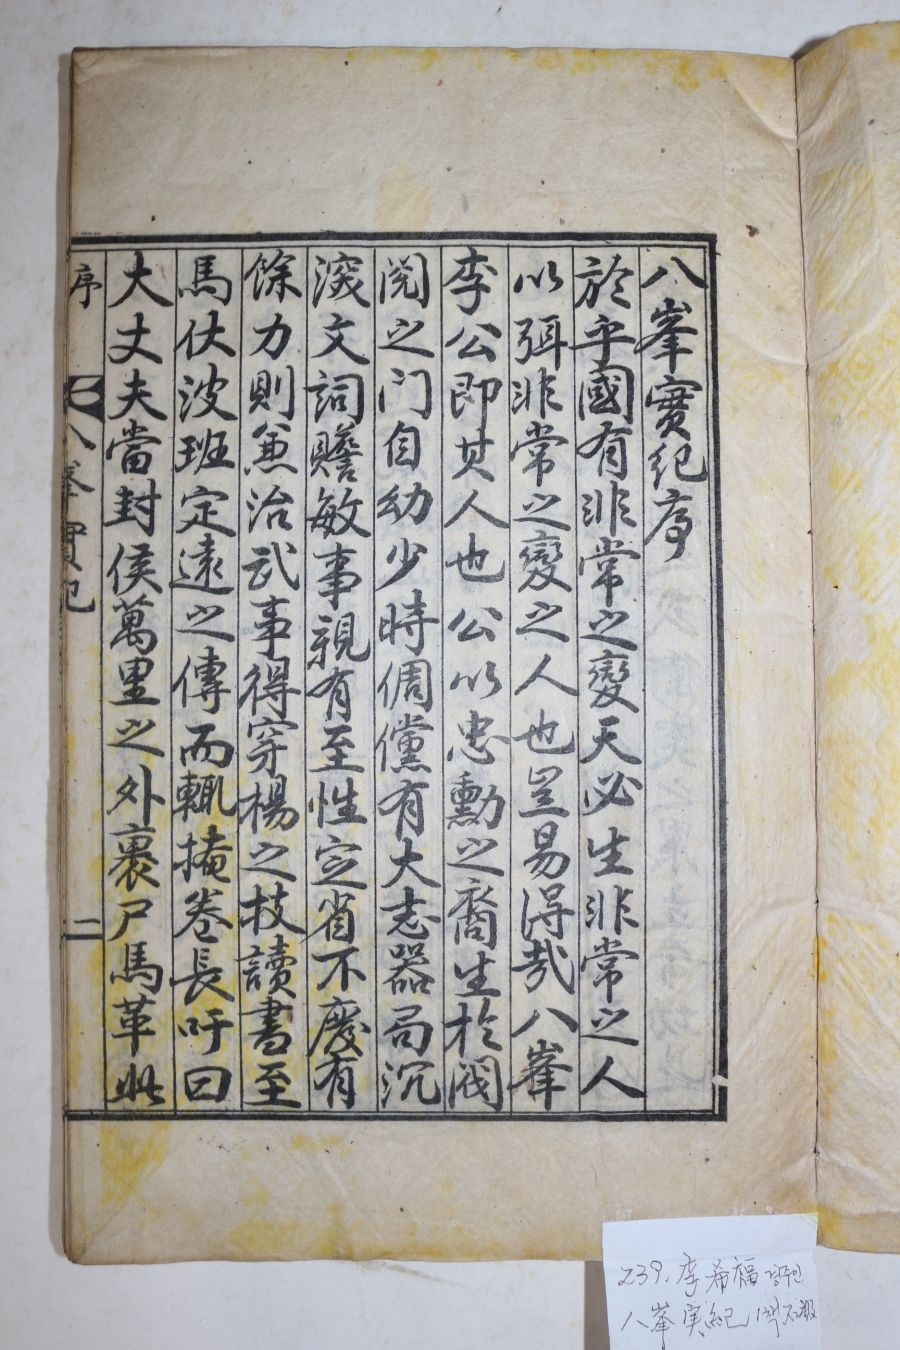 八峯實紀序
於乎國有非常之變天必生非常之人
以弭非常之變之人也豈易得哉八峯
李公即其人也公以忠勳之裔生於閥
閱之門自幼少時倜儻有大志器局沉
深文詞贍敏事親有至性定省不廢有
餘力則兼治武事得穿楊之技讀書至
馬伏波班定遠之傳而輒掩卷長吁曰
大丈夫當封侯萬里之外裹尸馬革此
序 八峯實紀 二
239. 李希福
八峯実紀